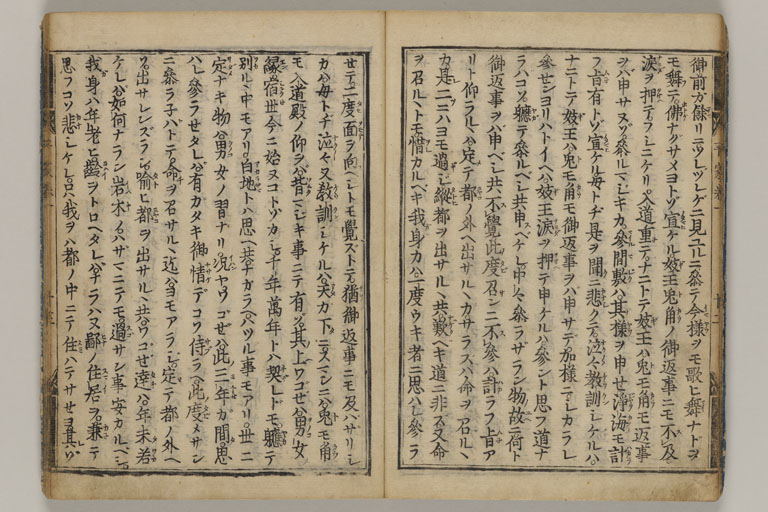 御前カ餘リニツレヅレゲニ見ユルニ參テ今様ヲモ歌ヒ舞ナトヲ
モ舞テ佛ナクサメヨトゾ宣ケル妓王兎角ノ御返事ニモ不及
涙ヲ押テフシニケリ入道重テナニトテ妓王ハ兎モ角モ返事
ヲハ申サヌゾ參ルマジキカ參間敷ハ其様ヲ申セ浄海モ計
フ旨有トゾ宣ケル母トヂ是ヲ聞ニ悲クテ泣々教訓シケルハ
ナニトテ妓王ハ兎モ角モ御返事ヲハ申サデ加様ニシカラレ
參センヨリハトイヘハ妓王涙ヲ押テ申ケルハ參ント思フ道ナ
ラハコソ軈テ參ルベシ共申スベケレ中々參ラザラン物故ニ荷ト
御返事ヲハ申ベシ共不覺此度召ンニ不參ハ計ラフ旨ア
リト仰ラルヽハ定テ都ノ外ヘ出サルヽカサラスハ命ヲ召ルヽ
カ是二ニハヨモ過シ縦都ヲ出サルヽ共歎ヘキ道ニ非ス又命
ヲ召ルヽトモ惜カルベキ我身カハ一度ウキ者ニ思ハレ參ラ
セテ二度面ヲ向ヘシトモ覺ストテ猶御返事ニモ及ハサリシ
カハ母トヂ泣々又教訓シケルハ天カ下ニスマンニハ兎モ角
モ入道殿ノ仰ヲハ背マジキ事ニテ有ゾ其上ワコセハ男女
縁宿世今ニ始ヌコトゾカシ千年萬年トハ契レトモ軈テ
別ルヽ中モアリ白地トハ思ヘ共ナカラヘハツル事モアリ世ニ
定ナキ物ハ男女ノ習ナリ況ヤワゴゼハ此三年カ間思
ハレ參ラセタレハ有カタキ御情デコソ侍ラヘ此度メサン
ニ參ラネハトテ命ヲ召サルヽ迄ハヨモアラジ定テ都ノ外ヘ
ソ出サレンズラン喩ヒ都ヲ出サルヽ共ワゴゼ達ハ年未若
ケレハ如何ナラン岩木ノハサマニテモ過サン事安カルベシ
我身ハ年老ヒ齢ヲトロヘタレハナラハヌ鄙ノ住居ヲ兼テ
思フコソ悲シケレ只我ヲハ都ノ中ニテ住ハテサセヨ其ソ